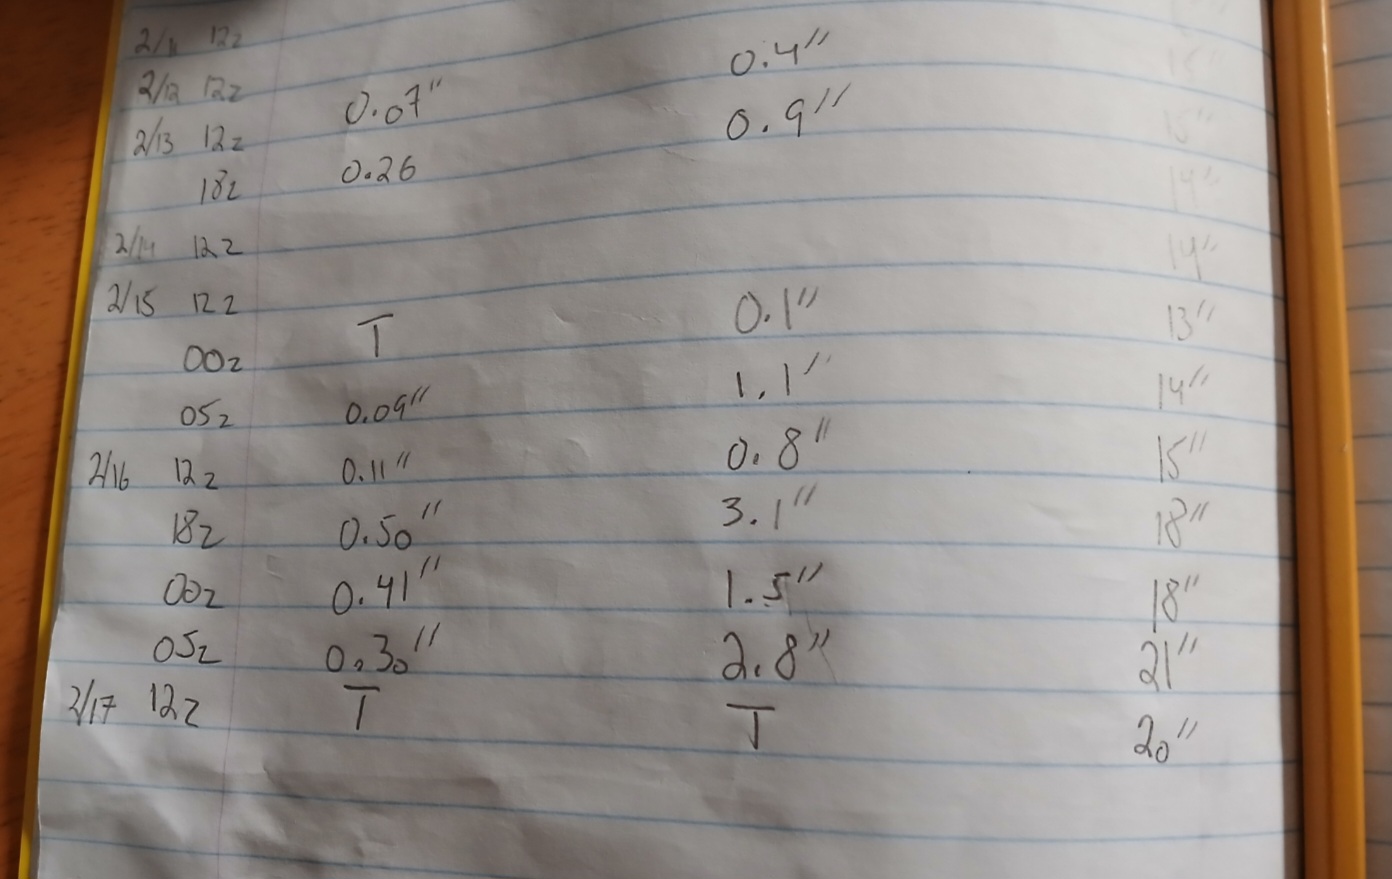 2/11 12z
2/12 12z
2/13 12z 0.07" 0.4" 15"
18z 0.26 0.9" 15"
2/14 12z 14"
2/15 12z 14"
00z T 0.1" 13"
05z 0.09" 1.1" 14"
2/16 12z 0.11" 0.8" 15"
18z 0.50" 3.1" 18"
00z 0.41" 1.5" 18"
05z 0.30" 2.8" 21"
2/17 12z T T 20"